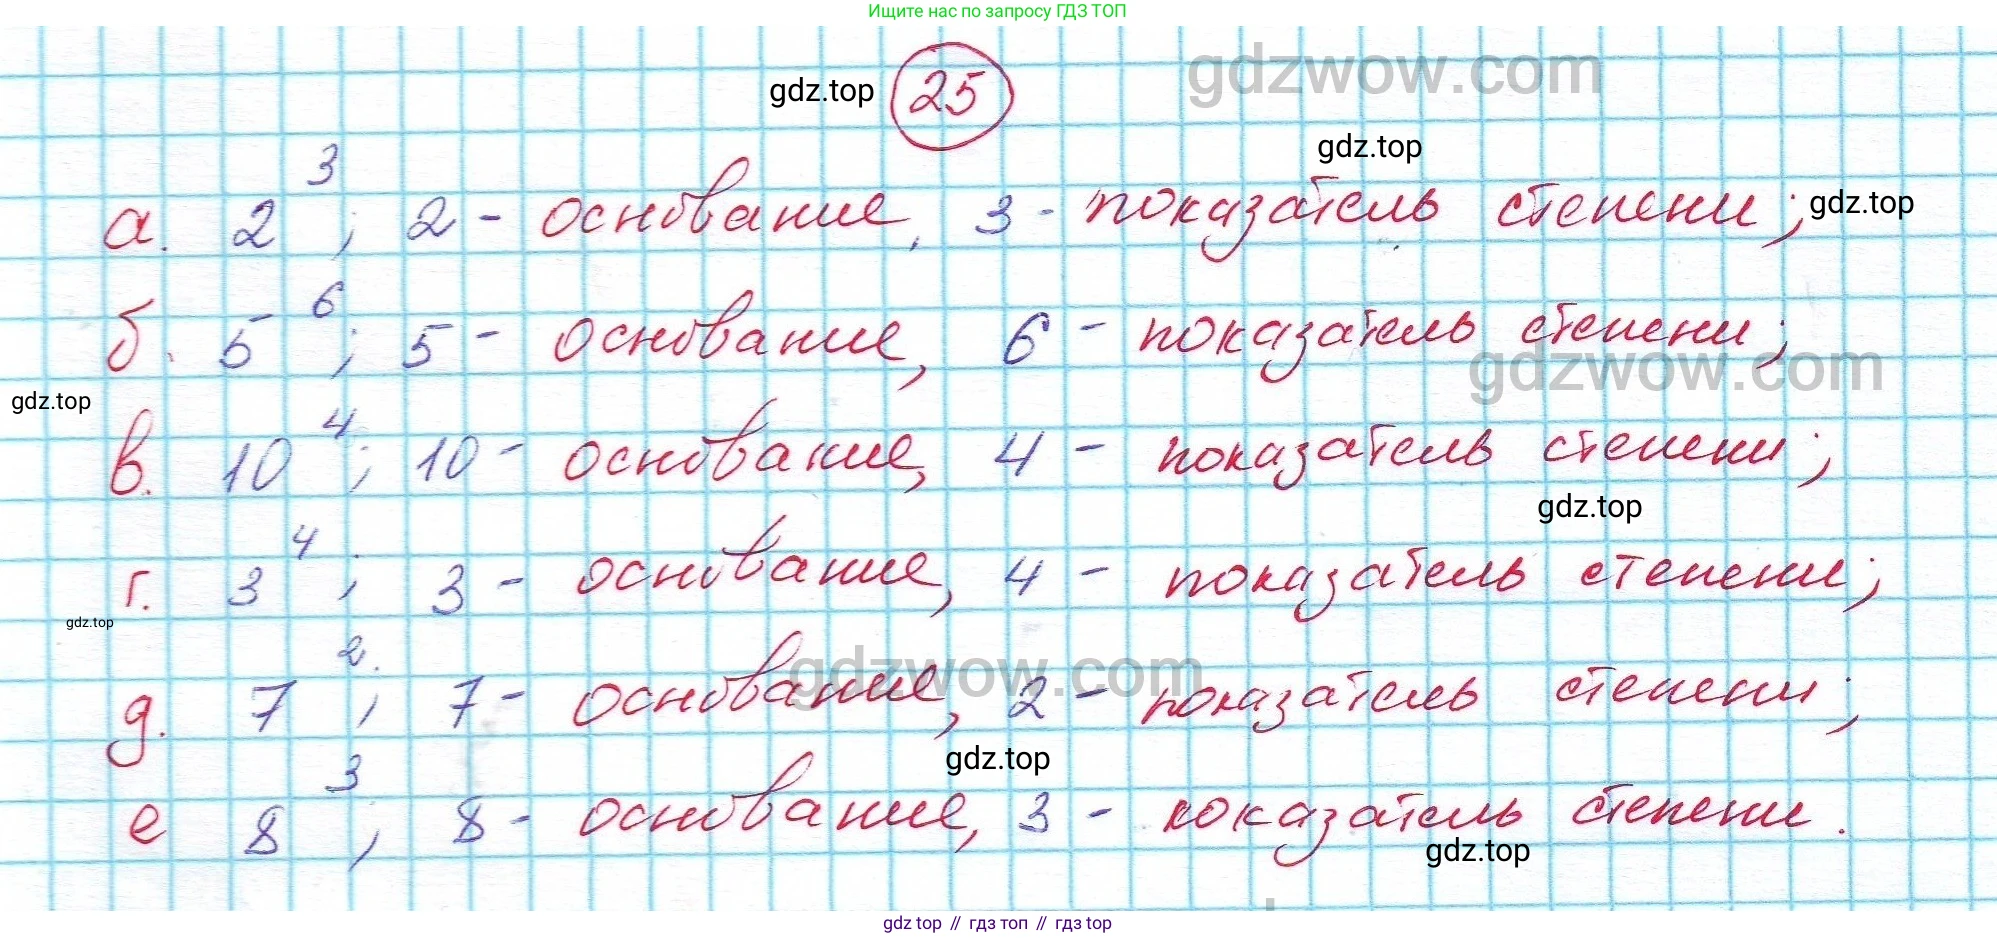 Ищите нас по запросу ГДЗ ТОП
gdzwow.com
gdz.top 25
gdz.top
а. 2³; 2 - основание, 3 - показатель степени; gdz.top
б. 5⁶; 5 - основание, 6 - показатель степени;
gdzwow.com
gdz.top
в. 10⁴; 10 - основание, 4 - показатель степени;
gdz.top
г. 3⁴; 3 - основание, 4 - показатель степени;
gdz.top
gdzwow.com
д. 7²; 7 - основание, 2 - показатель степени;
gdz.top
е 8³; 8 - основание, 3 - показатель степени.
gdz.top
gdz.top // гдз топ // гдз top